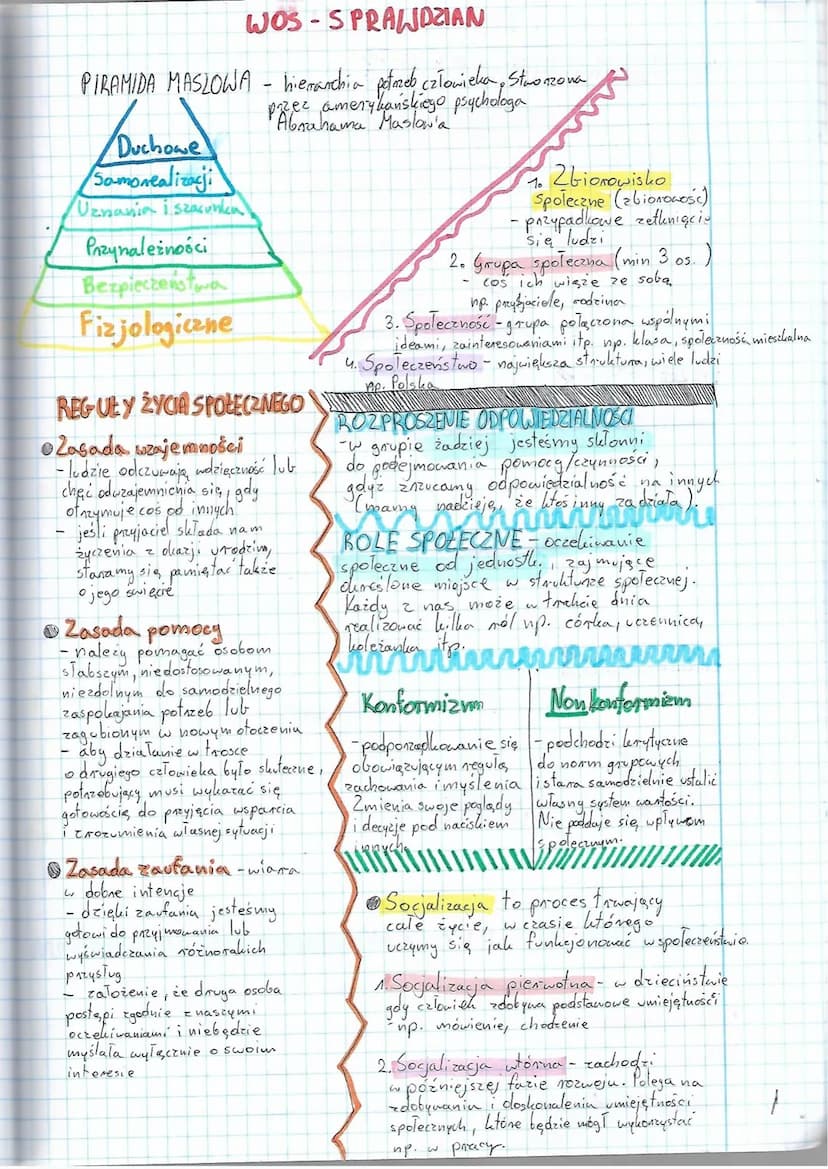 WOS - SPRAWDZIAN
PIRAMIDA MASLOWA - hierarchia potrzeb człowieka, Stworzona
przez amerykańskiego psychologa
Abrahama Maslow'a
Duchowe
Samorealizacji
Uznania i szacunku
Przynależności
Bezpieczeństwa
Fizjologiczne
1. Zbiorowisko
społeczne (zbiorowość)
- przypadkowe zetknięcie
się ludzi
2. Grupa społeczna (min 3 os.)
- coś ich wiąże ze sobą
np. przyjaciele, rodzina
3. Społeczność - grupa połączona wspólnymi
ideami, zainteresowaniami itp. np. klasa, społeczność mieszkalna
4. Społeczeństwo - największa struktura, wiele ludzi
np. Polska
REGUŁY ŻYCIA SPOŁECZNEGO
Zasada wzajemności
- ludzie odczuwają wdzięczność lub
chęć odwzajemnienia się, gdy
otrzymuje coś od innych
- jeśli przyjaciel składa nam
życzenia z okazji urodzin,
staramy się pamiętać także
o jego święcie
Zasada pomocy
- należy pomagać osobom
słabszym, niedostosowanym,
niezdolnym do samodzielnego
zaspokajania potrzeb lub
zagubionym w nowym otoczeniu
- aby działanie w trosce
o drugiego człowieka było skuteczne,
potrzebujący musi wykazać się
gotowością do przyjęcia wsparcia
i zrozumienia własnej sytuacji
Zasada zaufania - wiara
w dobre intencje
- dzięki zaufaniu jesteśmy
gotowi do przyjmowania lub
wyświadczania różnorakich
przysług
- założenie, że druga osoba
postąpi zgodnie z naszymi
oczekiwaniami i niebędzie
myślała wyłącznie o swoim
interesie
ROZPROSZENIE ODPOWIEDZIALNOŚCI
- w grupie żadziej jesteśmy skłonni
do podejmowania pomocy/czynności,
gdyż zrzucamy odpowiedzialność na innych
(mamy nadzieję, że ktoś inny zadziała).
ROLE SPOŁECZNE - oczekiwanie
społeczne od jednostki, zajmujące
określone miejsce w strukturze społecznej.
Każdy z nas może w trakcie dnia
realizować kilka ról np. córka, uczennica,
koleżanka itp.
Konformizm
- podporządkowanie się
obowiązującym regułą
zachowania i myślenia
Zmienia swoje poglądy
i decyzje pod naciskiem
innych.
Nonkonformizm
- podchodzi krytyczne
do norm grupowych
i stara samodzielnie ustalić
własny system wartości.
Nie poddaje się wpływom
społecznym.
Socjalizacja to proces trwający
całe życie, w czasie którego
uczymy się jak funkcjonować w społeczeństwie.
1. Socjalizacja pierwotna - w dzieciństwie
gdy człowiek zdobywa podstawowe umiejętności
np. mówienie, chodzenie
2. Socjalizacja wtórna - zachodzi
w późniejszej fazie rozwoju. Polega na
zdobywaniu i doskonaleniu umiejętności
społecznych, które będzie mógł wykorzystać
np. w pracy.